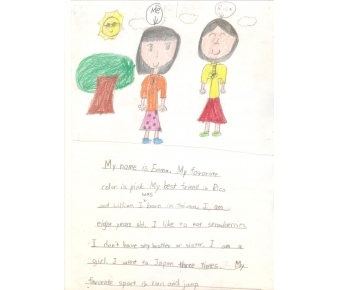 Me
Rica
My name is Emma. My favorate
color is pink. My best friend is Rica
and Lillian. I was born in Taiwan. I am
eight years old. I like to eat strawberries
I don't have any brother or sister. I am a
girl. I went to Japan three times. My
favorate sport is run and jump